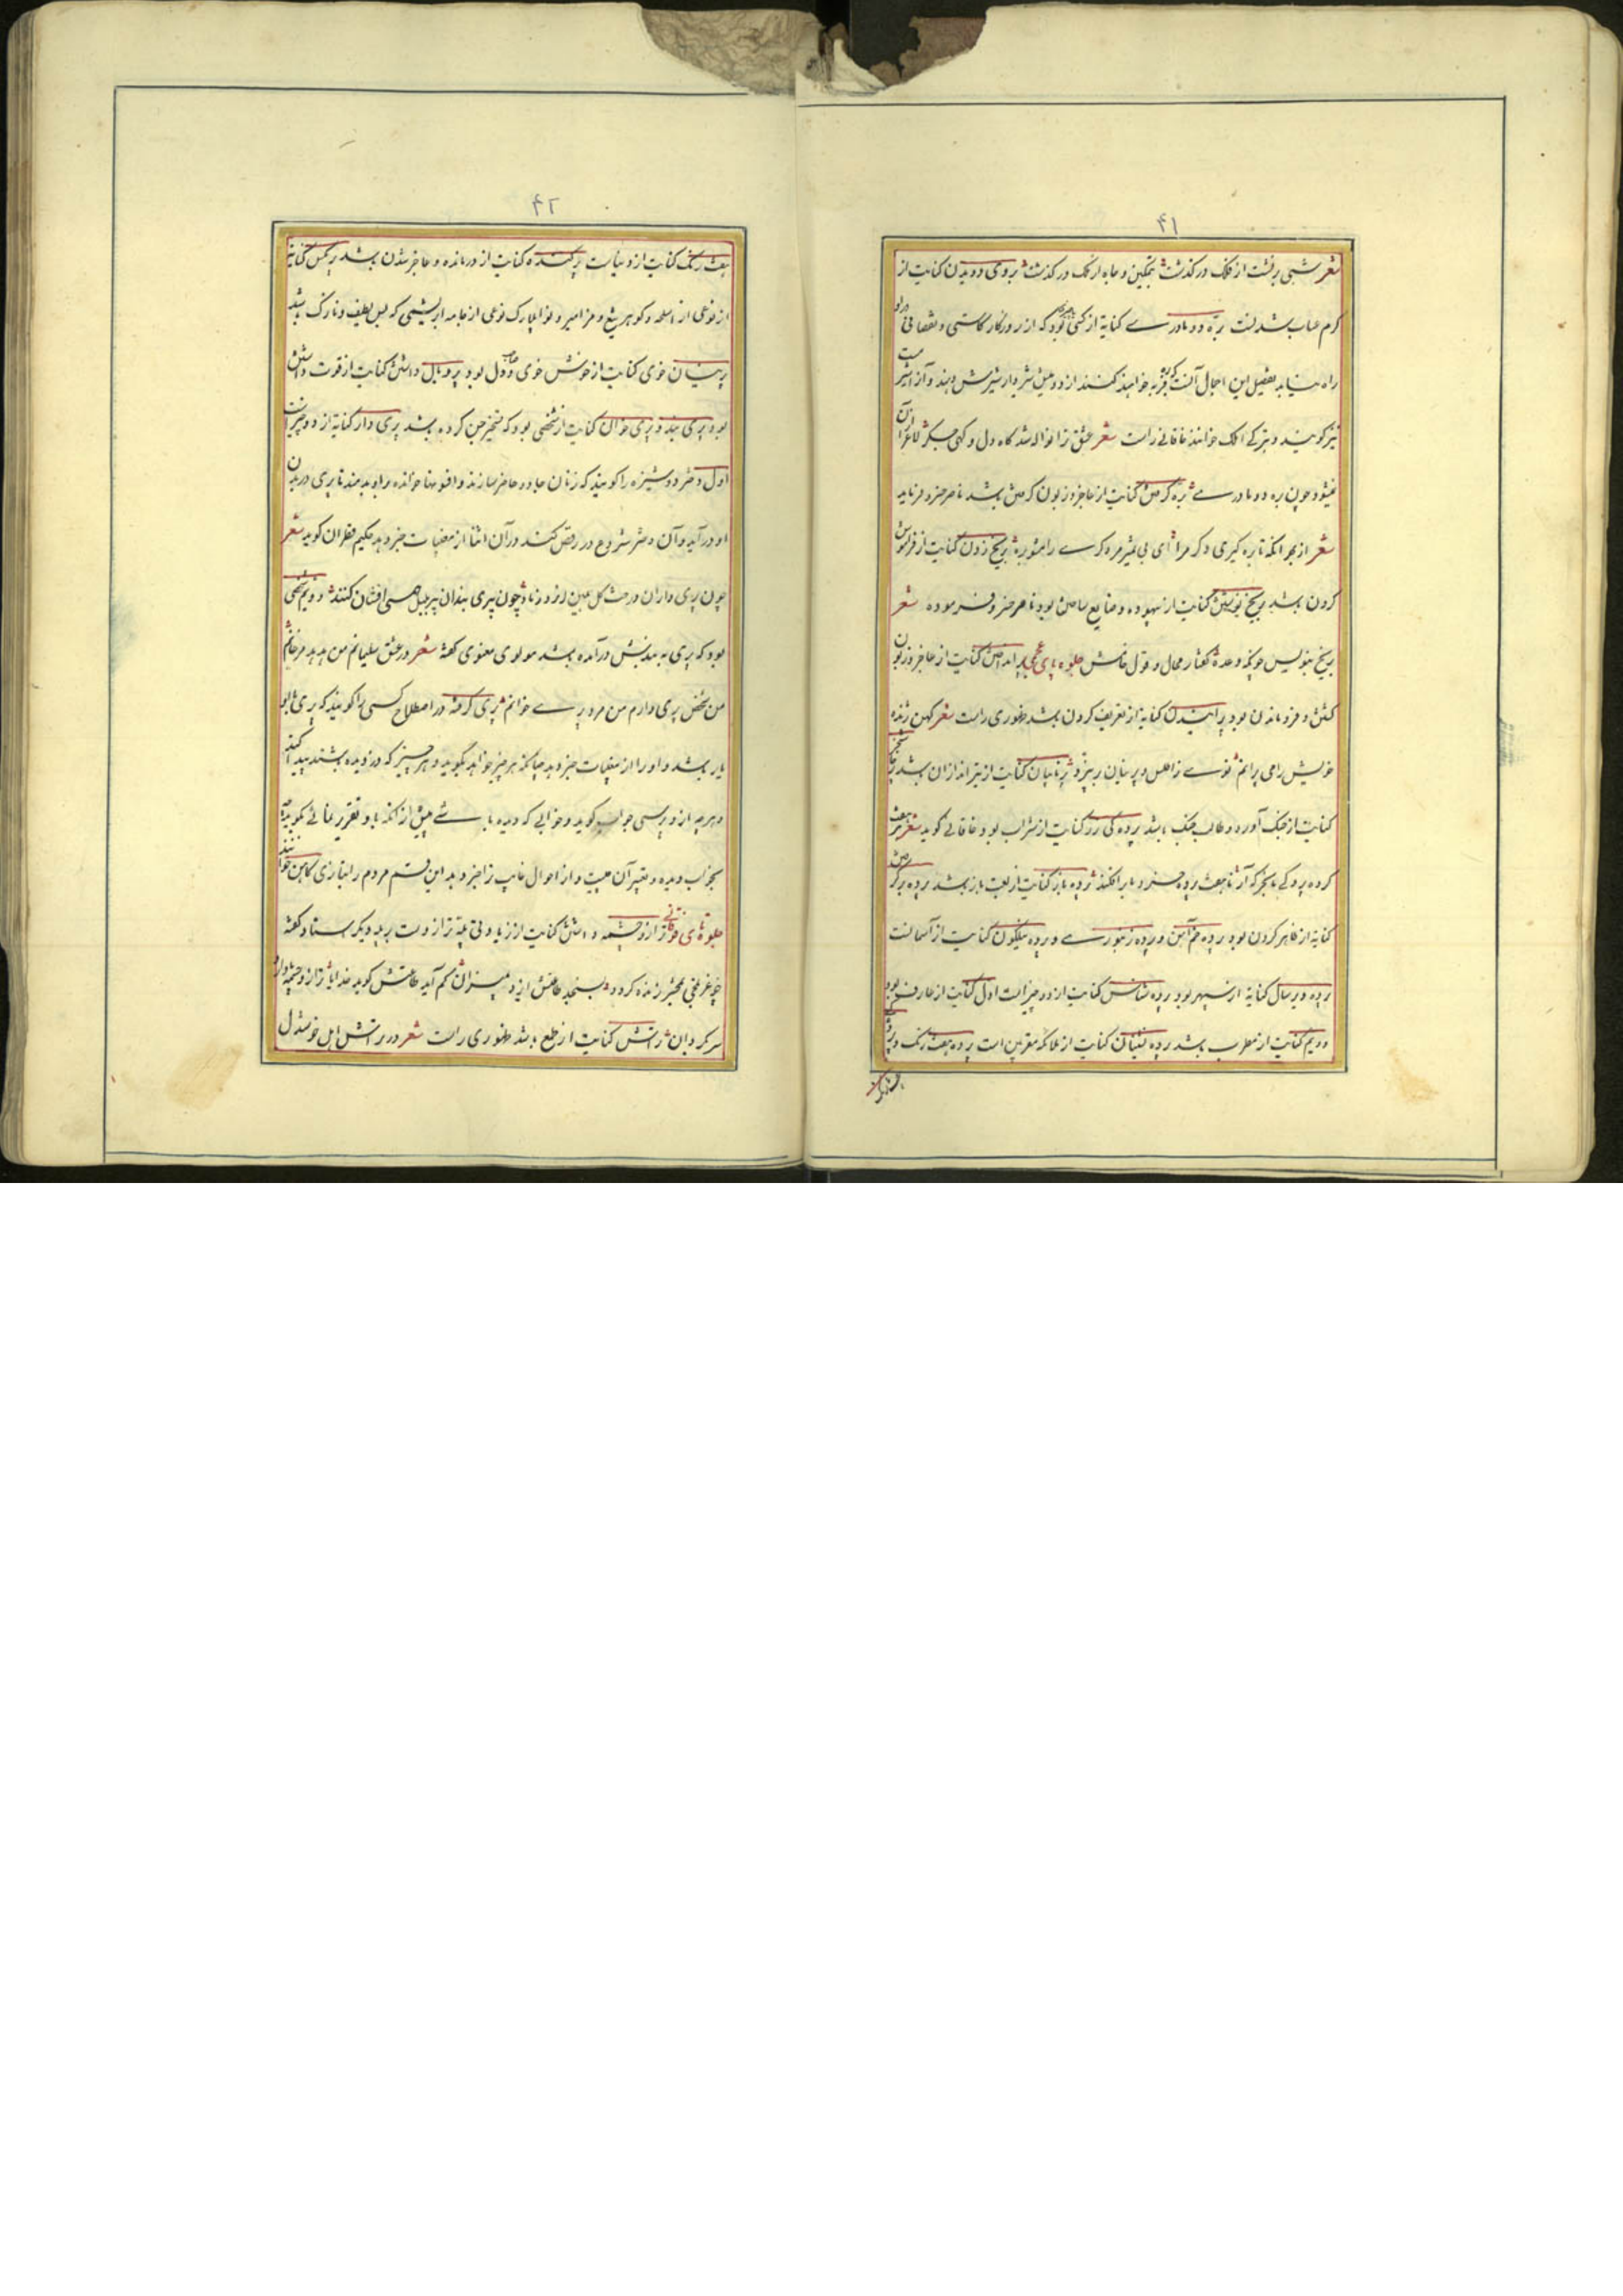 ۴۱
شعر شبی برنشست از فلک درگذشت بتمکین و جاه از ملک درگذشت بروی دویدن کنایت از
گرم عتاب شدنست بره دو مادری کنایه از کسی بود که از روزگار کاستی و نقصانی
راه نیابد تفصیل این اجمال آنست بره که فربه خواهند کنند از دو میش شیردار شیرش دهند و آنرا شیر
نیز گویند و بترکی امک خوانند خاقانی راست شعر عشق ترا نواله شد گاه دل و گهی جگر لاغر از آن
نمیشود چون بره دو مادری بره گرفتن کنایت از عاجز و زبون گرفتن باشد ناصر خسرو فرماید
شعر از بهر آنکه تا بره گیری دگر مرا ای بی تمیز مردکی را مشو بره بر یخ زدن کنایت از فراموش
کردن باشد بر یخ نوشتن کنایت از بیهوده و ضایع ساختن بود ناصر خسرو فرموده شعر
بر یخ بنویس چونکه وعده گفتار محال و قول خامش جلوه بای عجمی پر انداختن کنایت از عاجز و زبون
گشتن و فرو ماندن بود پرانیدن کنایه از تعریف کردن باشد ظهوری راست شعر کهن ژنده
خویش را می پرانم تو سی ز اطلس و پرنیان ریز پرتابیان کنایت از تیراندازان باشد
کنایت از جنگ آور و طالب جنگ باشد پرده کی رز کنایت از شراب بود خاقانی گوید شعر هفت
کرده پردگی با بحر که آر تا هفت پرده خرد ما برافکند پرده باز کنایت از لعبت باز باشد پرده برگرفتن
کنایه از ظاهر کردن بود پرده خم آهن و پرده زنبوری و پرده نیلگون کنایت از آسمانست
پرده دیرسال کنایه از سپهر بود پرده شناس کنایت از دو چیز است اول کنایت از عارف بود
دویم کنایت از مطرب باشد پرده نشینان کنایت از ملائکه مقربین است پرده هفت رنگ و
هفت رنگ
۴۲
هفت رنگ کنایت از دنیاست پر کنده کنایت از درمانده و عاجز شدن باشد پر مگس کنایه
از نوعی از اسلحه و گوهر تیغ و مزامیر و نوا بلارک نوعی از جامه ابریشمی که بس لطیف و نازک باشد
پرنیان خوی کنایت از خوش خوی و صاحب دل بود پر و بال داشتن کنایت از قوت داشتن
بود پری بند و پری خوان کنایت از شخصی بود که تسخیر جن کرده باشد پری دار کنایه از دو چیز است
اول دختر دوشیزه را گویند که زنان جادو حاضر سازند و افسونها خوانده و بر او بدمند تا پری در بدن
او در آید و آن دختر شروع در رقص کند در آن اثنا از مغیبات خبر دهد حکیم قطران گوید شعر
چون پری داران درخت گل همی لرزد ز باد چون پری بندان پر بلبل همی افشان کنند دویم شخصی
بود که پری به بدنش درآمده باشد مولوی معنوی گفته شعر در عشق سلیمانم من همدم مرغانم
من شخص پری دارم من مرد پری خوانم پری گرفته در اصطلاح کسی را گویند که پری با او
یار باشد و او را از مغیبات خبر دهد چنانکه هر چیز خواهد بگوید و هر چیز که دزدیده باشند پیدا کند
و هر چه از وی پرسی جواب گوید و خوابی که دیده باشی پیش از آنکه با او تقریر نمائی بگوید که
بخواب دیده و تعبیر آن چیست و از احوال غایب ترا خبر دهد این قسم مردم را بتازی کاهن خوانند
جلوه تای فوقانی ترازو چشمه داشتن کنایت از زیادتی پله ترازوست بر پله دیگر استاد گفته
چو غرغنی بمحشر زنده گردد و بسنجد طاعتش ایزد بمیزان کم آید طاعتش گوید خدایا ترازو چشمه دارد
سرگردان تراش کنایت از طمع باشد ظهوری راست شعر در تراش اهل خوشدل